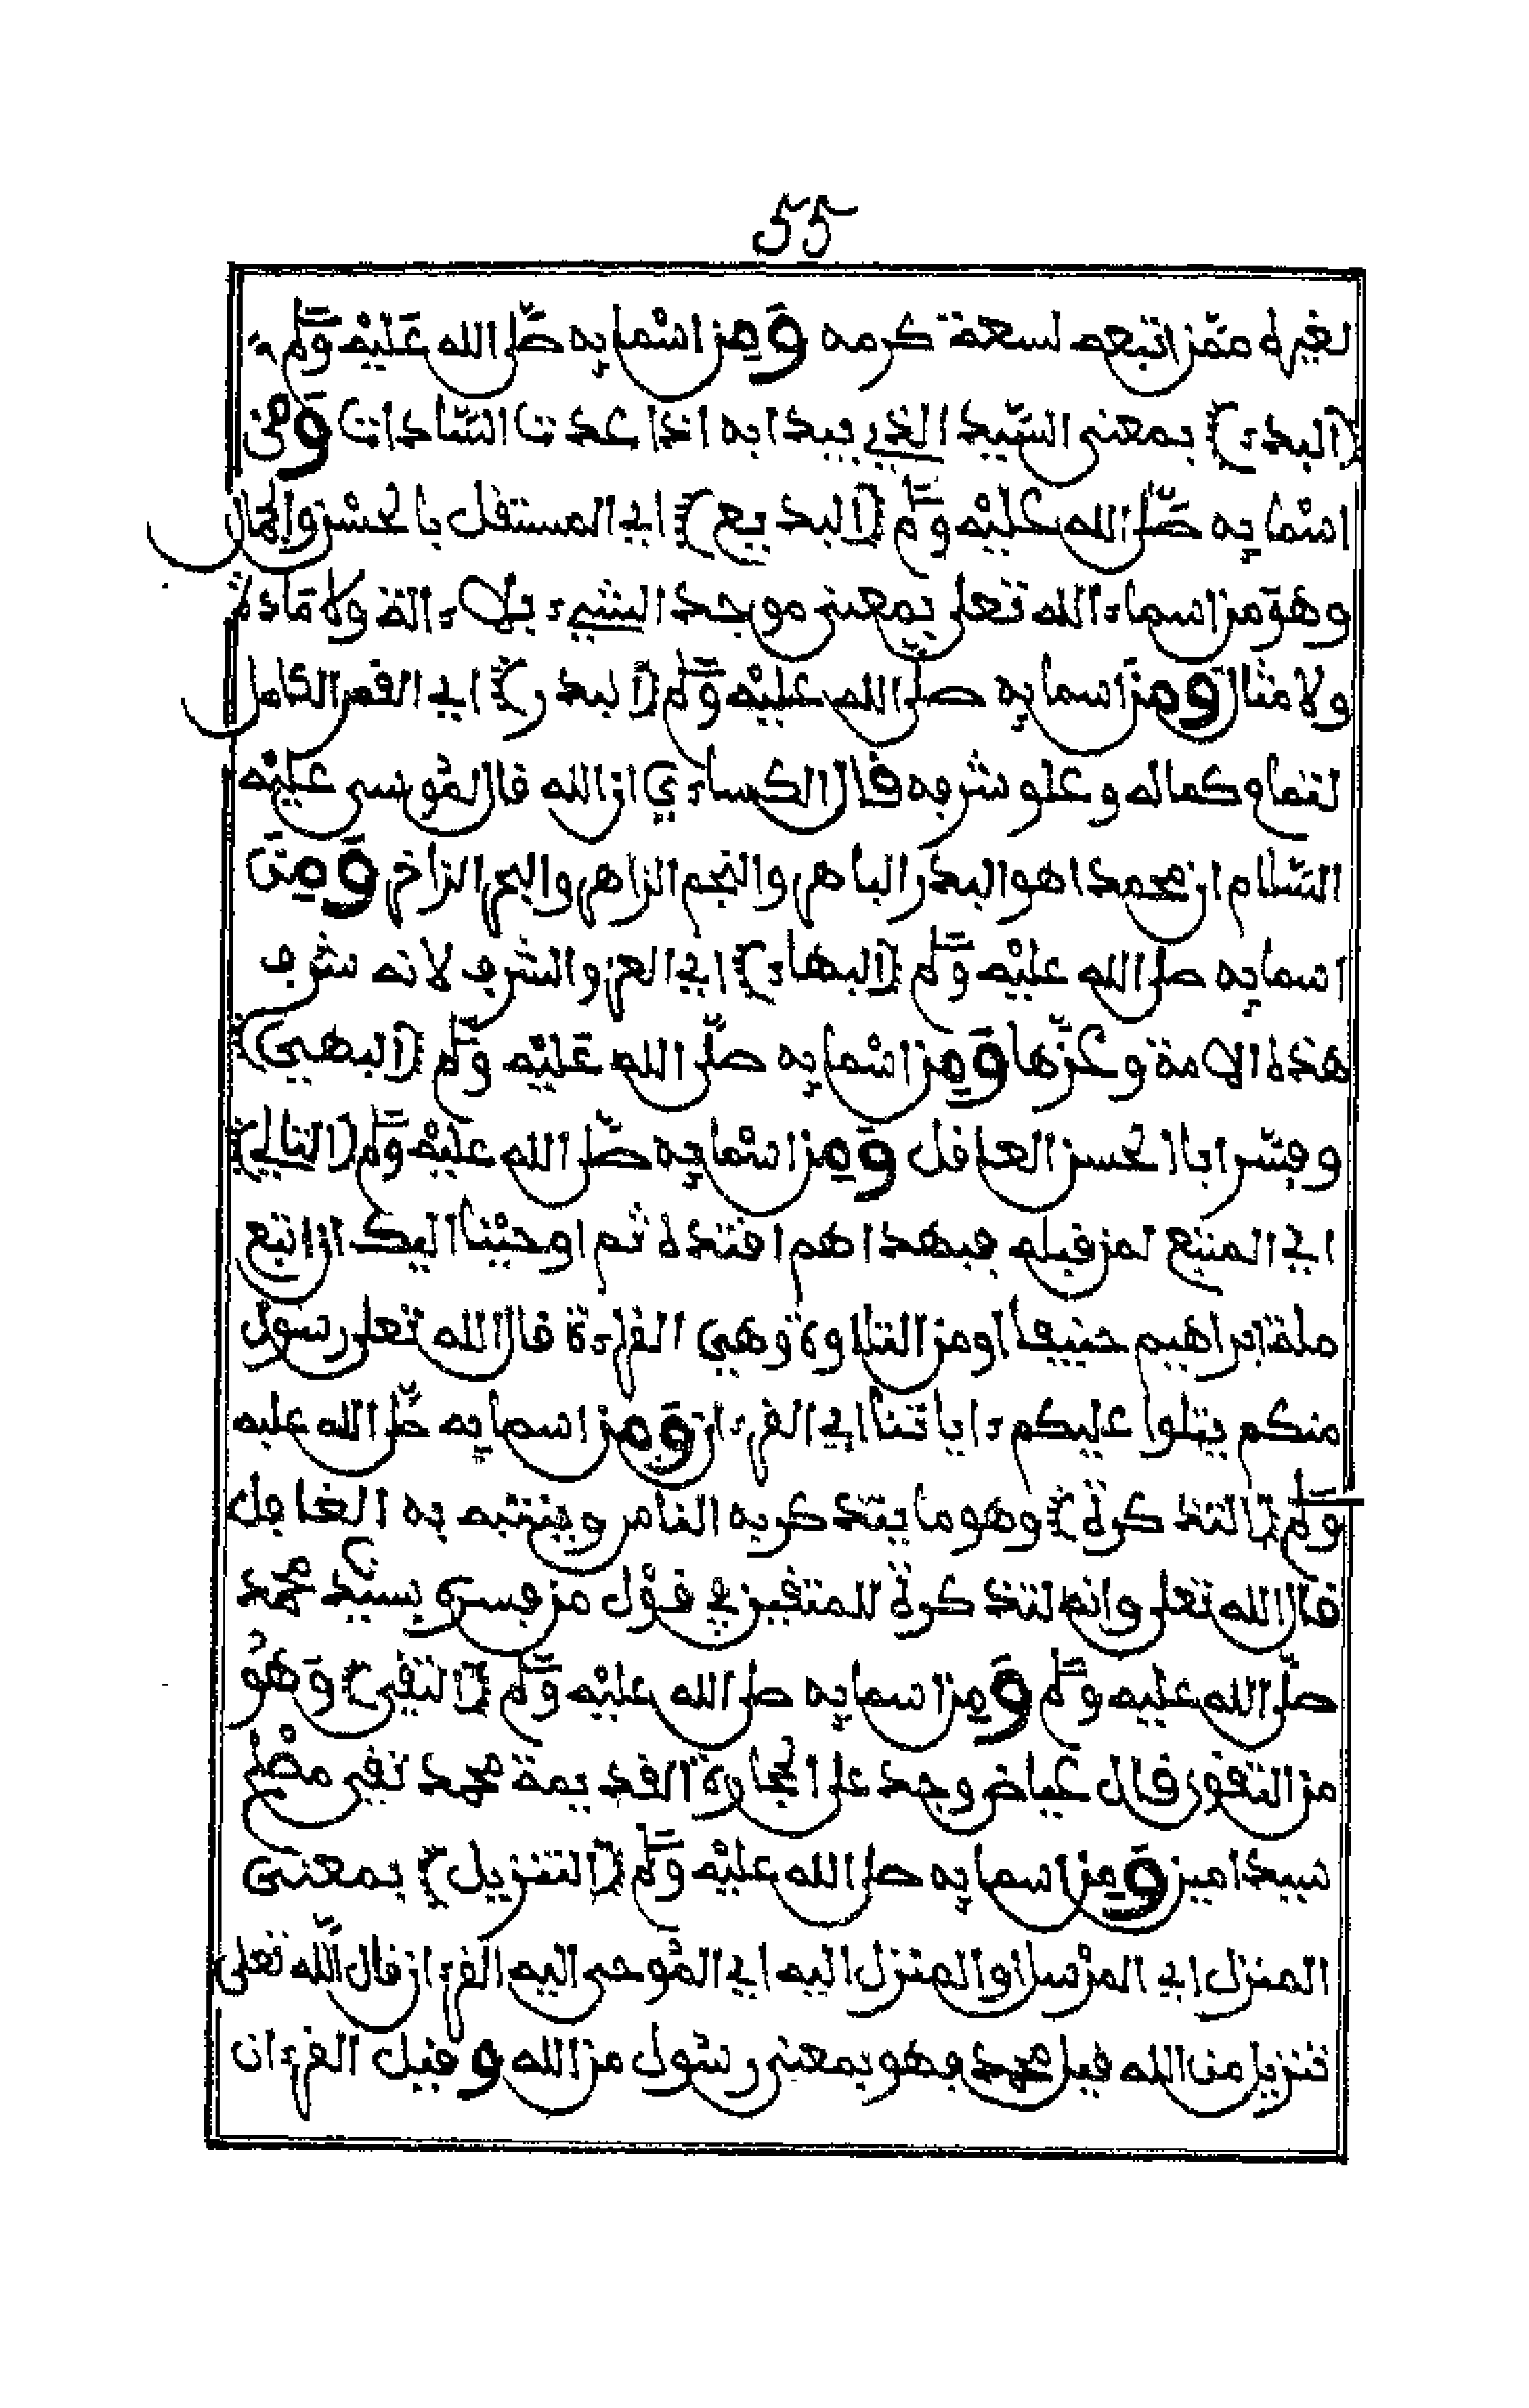 55
لغيره ممّن اتبعه لسعة كرمه وَمِن اسْمايه صلّى الله عَليْه وَسَلّم
(البدء) بمعنى السّيد الذي يبدا به اذا عدت السّادات وَمِن
اسْمايه صلّى الله عليْه وسَلّم (البديع) اي المستقل بالحسْن والجمال
وهو من اسماء الله تعلى بمعنى موجد الشيء بلا ءالة ولا مادة
ولا مثال وَمِن اسمايه صلى الله عليْه وَسَلّم (البدر) اي القمر الكامل
لتمامه وكماله وعلو شرفه قال الكساءي ان الله قال لمُوسى عليْه
السّلام ان محمدا هو البدر الباهر والنجم الزاهر والبحر الزاخر وَمِن
اسمايه صلى الله عليْه وَسَلّم (البهاء) اي العز والشرف لانه شرف
هذه الامة وعزّها وَمِن اسْمايه صلّى الله عَليْه وَسَلّم (البهي)
وفسّر ابا الحسن العاقل وَمِن اسْمايه صلّى الله عليْه وَسَلّم (التالي)
اي المتبع لمن قبله فبهداهم اقتده ثم اوحيْنا اليك ان اتبع
ملة ابراهيم حنيفا او من التلاوة وهي القراءة قال الله تعْلى رسولا
منكم يتلوا عليكم ءاياتنا اي القرءان وَمِن اسمايه صلّى الله عليه
وَسَلّم (التذكرة) وهو ما يتذكر به الناس وينتبه به الغافل
قال الله تعلى وانه لتذكرة للمتقين في قوْل من فسره بسيّد محمّد
صلّى الله عليه وسَلّم وَمِن اسمايه صلى الله عليْه وَسَلّم (التقي) وَهُو
من التقوى قال عياض وجد على الحجارة القديمة محمد تقي مصْلح
سيد امين وَمِن اسمايه صلى الله عليْه وَسَلّم (التنزيل) بمعنى
المنزل اي المرْسل او المنزل اليه اي المُوحى اليه القرءان قال الله تعلى
تنزيل من الله قيل محمد وهو بمعنى رسُول من الله وقيل القرءان